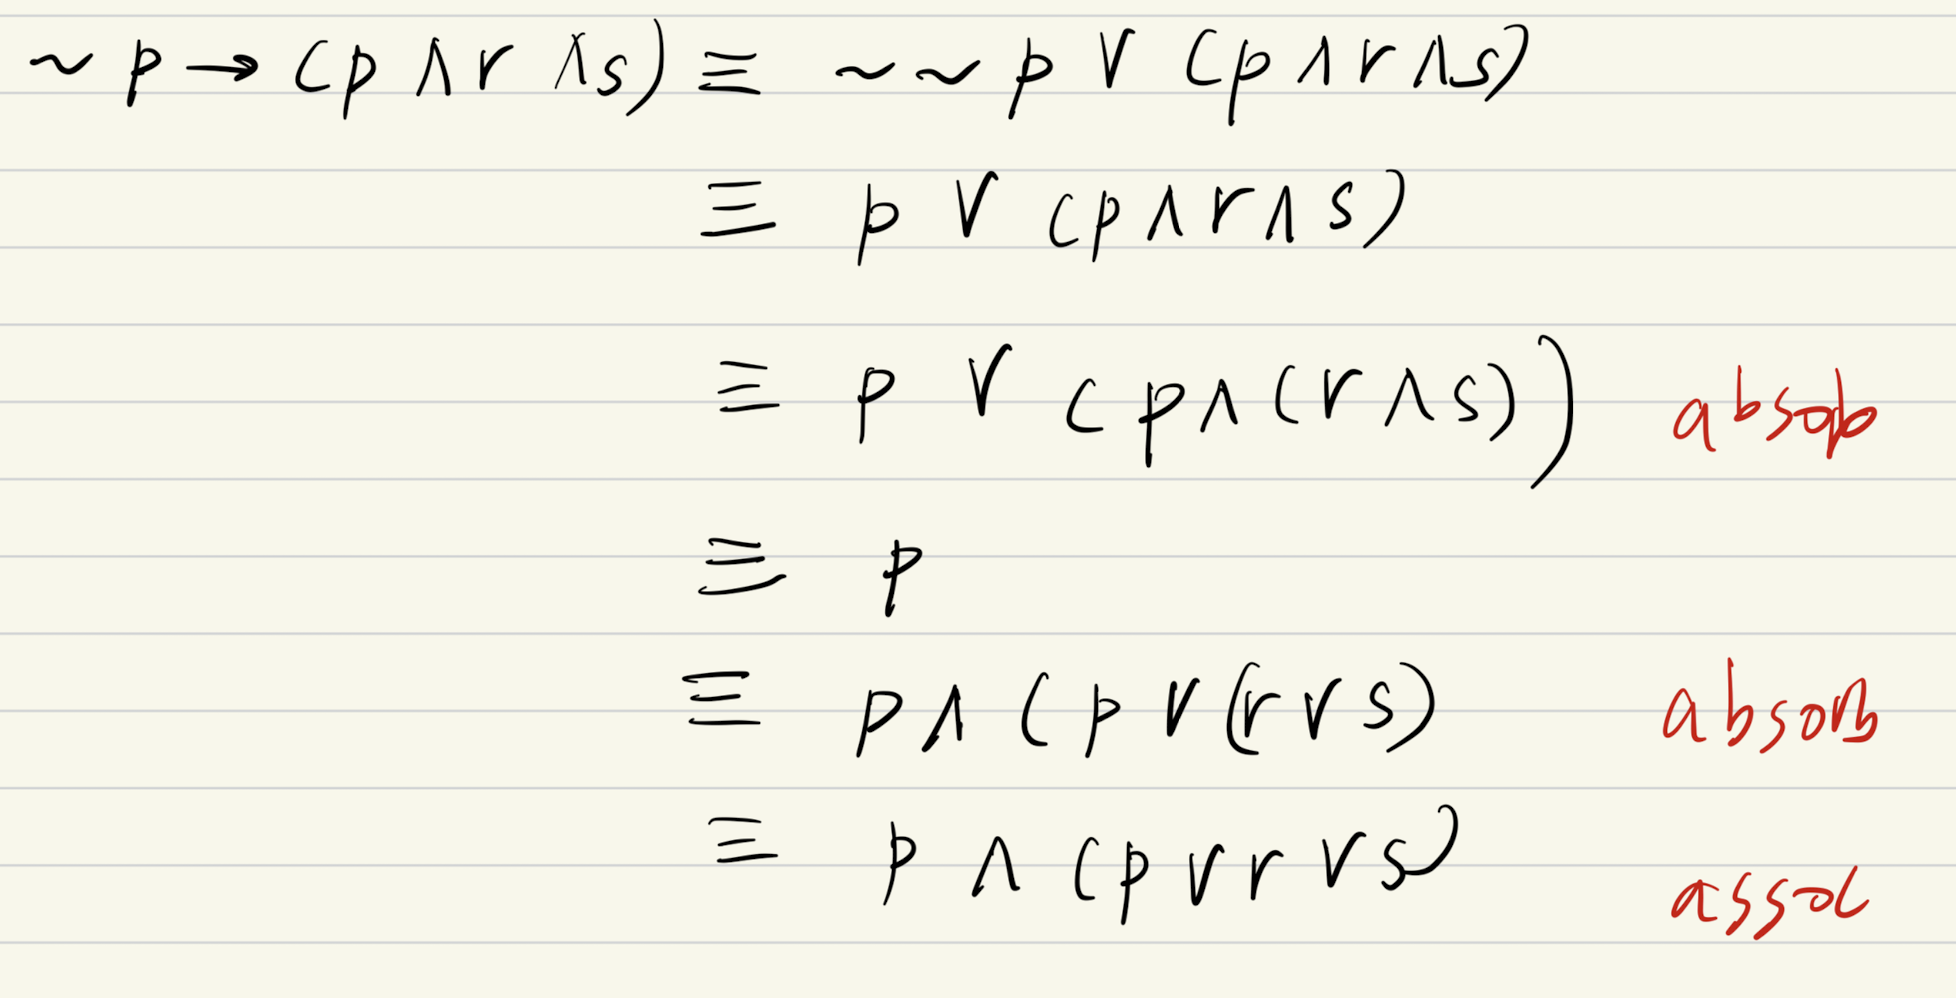 ~ p → (p ∧ r ∧ s) ≡ ~ ~ p ∨ (p ∧ r ∧ s)
≡ p ∨ (p ∧ r ∧ s)
≡ p ∨ (p ∧ (r ∧ s)) absob
≡ p
≡ p ∧ (p ∨ (r ∨ s) absorb
≡ p ∧ (p ∨ r ∨ s) assoc